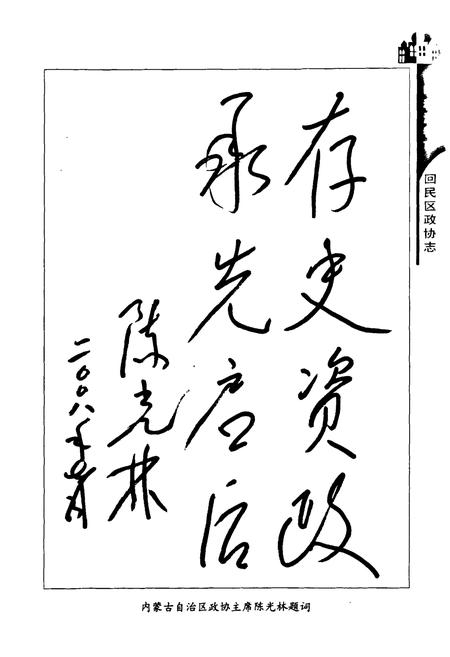 存史资政
承先启后
陈光林
二〇〇八年
回民区政协志
内蒙古自治区政协主席陈光林题词